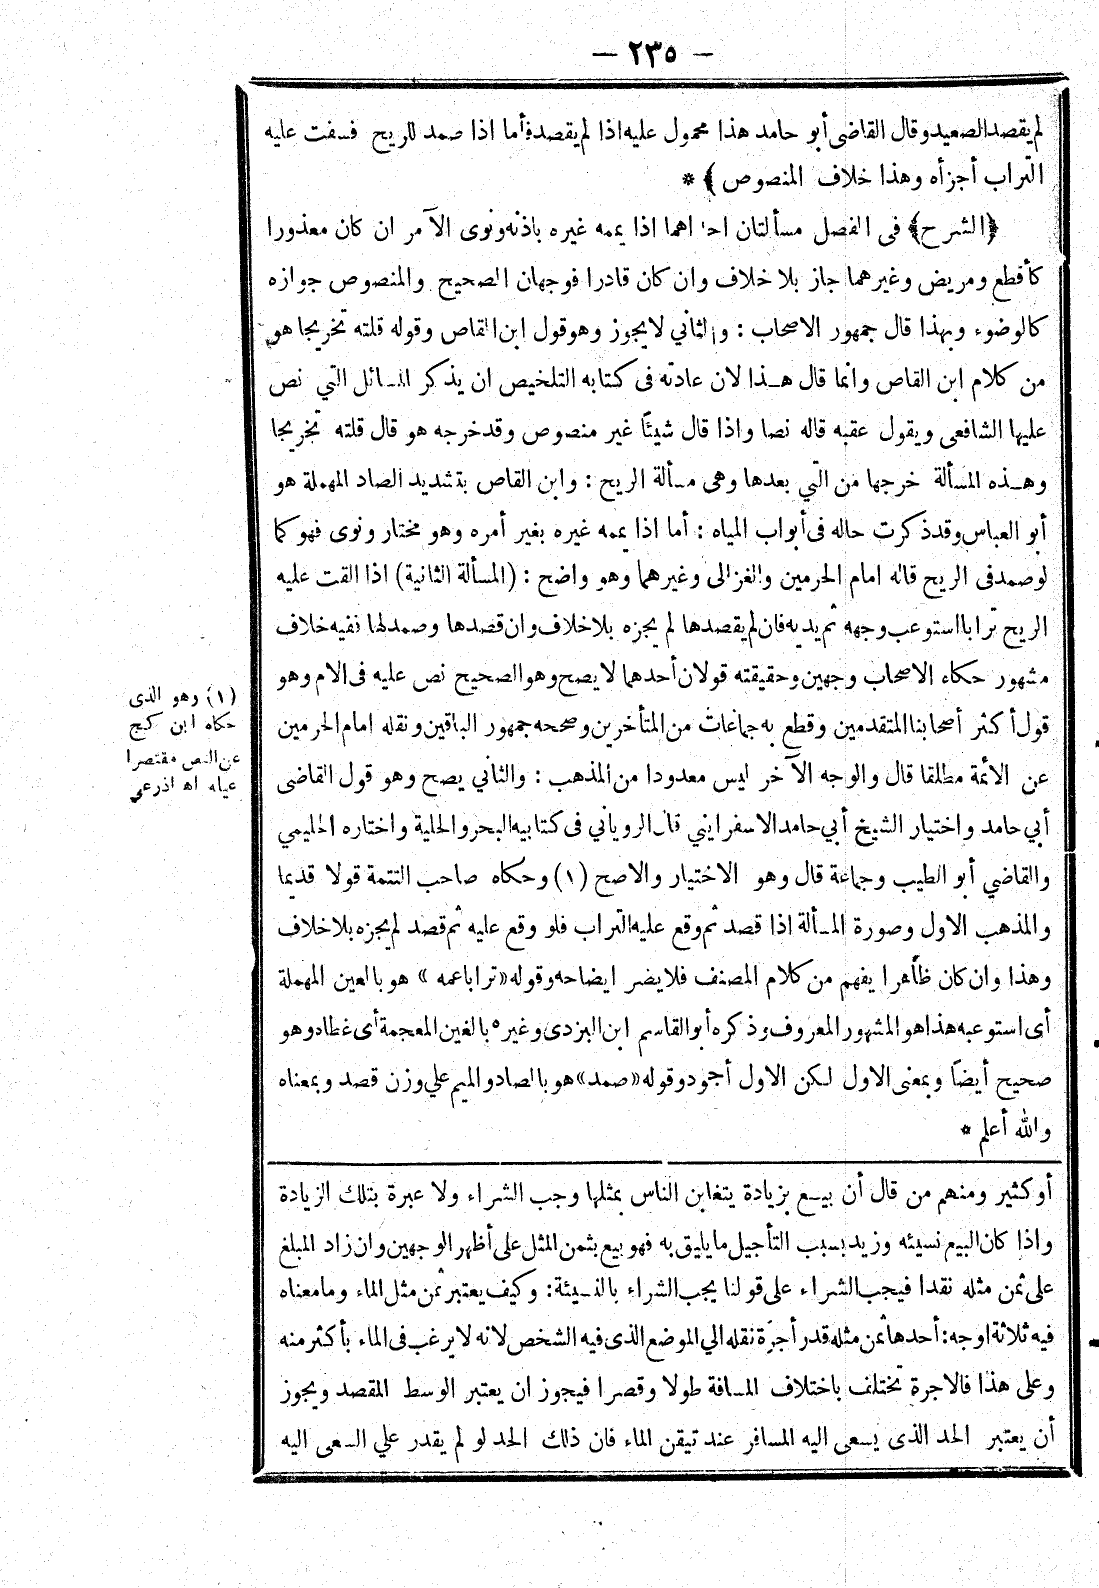 — ٢٣٥ —
لم يقصد الصعيد وقال القاضى أبو حامد هذا محمول عليه اذا لم يقصد فأما اذا صمد للريح فسفت عليه
التراب أجزأه وهذا خلاف المنصوص ﴾ *
﴿الشرح﴾ فى الفصل مسألتان احداهما اذا يممه غيره باذنه ونوى الآمر ان كان معذورا
كأقطع ومريض وغيرهما جاز بلا خلاف وان كان قادرا فوجهان الصحيح والمنصوص جوازه
كالوضوء وبهذا قال جمهور الاصحاب : والثاني لا يجوز وهو قول ابن القاص وقوله قلته تخريجا هو
من كلام ابن القاص وانما قال هـذا لان عادته فى كتابه التلخيص ان يذكر المسائل التي نص
عليها الشافعى ويقول عقبه قاله نصا واذا قال شيئًا غير منصوص وقد خرجه هو قال قلته تخريجا
وهـذه المسألة خرجها من التي بعدها وهى مسألة الريح : وابن القاص بتشديد الصاد المهملة هو
أبو العباس وقد ذكرت حاله فى أبواب المياه : أما اذا يممه غيره بغير أمره وهو مختار ونوى فهو كما
لو صمد فى الريح قاله امام الحرمين والغزالى وغيرهما وهو واضح : (المسألة الثانية) اذا القت عليه
الريح ترابا استوعب وجهه ثم يديه فان لم يقصدها لم يجزه بلا خلاف وان قصدها وصمد لها نفيه خلاف
مشهور حكاه الاصحاب وجهين وحقيقته قولان أحدهما لا يصح وهو الصحيح نص عليه فى الام وهو
قول أكثر أصحابنا المتقدمين وقطع به جماعات من المتأخرين وصححه جمهور الباقين ونقله امام الحرمين
عن الائمة مطلقا قال والوجه الآخر ليس معدودا من المذهب : والثاني يصح وهو قول القاضى
أبي حامد واختيار الشيخ أبي حامد الاسفرايني قال الروياني فى كتابيه البحر والحلية واختاره الحليمي
والقاضي أبو الطيب وجماعة قال وهو الاختيار والاصح (١) وحكاه صاحب التتمة قولا قديما
والمذهب الاول وصورة المسألة اذا قصد ثم وقع عليه التراب فلو وقع عليه ثم قصد لم يجزه بلا خلاف
وهذا وان كان ظاهرا يفهم من كلام المصنف فلا يضر ايضاحه وقوله «ترابا عمه » هو بالعين المهملة
أى استوعبه هذا هو المشهور المعروف وذكره أبو القاسم ابن البزرى وغيره بالغين المعجمة أى غطاه وهو
صحيح أيضًا وبمعنى الاول لكن الاول أجود وقوله «صمد» هو بالصاد والميم علي وزن قصد وبمعناه
والله أعلم *
(١) وهو الذى
حكاه ابن كج
عن النص مقتصرا
عليه اه اذرعي
أو كثير ومنهم من قال أن بيع بزيادة يتغابن الناس بمثلها وجب الشراء ولا عبرة بتلك الزيادة
واذا كان البيع نسيئه وزيد بسبب التأجيل ما يليق به فهو بيع بثمن المثل على أظهر الوجهين وان زاد المبلغ
على ثمن مثله نقدا فيجب الشراء على قولنا يجب الشراء بالنسيئة : وكيف يعتبر ثمن مثل الماء وما معناه
فيه ثلاثة اوجه : أحدها ثمن مثله قدر أجرة نقله الي الموضع الذى فيه الشخص لانه لا يرغب فى الماء بأكثر منه
وعلى هذا فالاجرة تختلف باختلاف المسافة طولا وقصرا فيجوز ان يعتبر الوسط المقصد ويجوز
أن يعتبر الحد الذى يسعى اليه المسافر عند تيقن الماء فان ذلك الحد لو لم يقدر علي السعى اليه